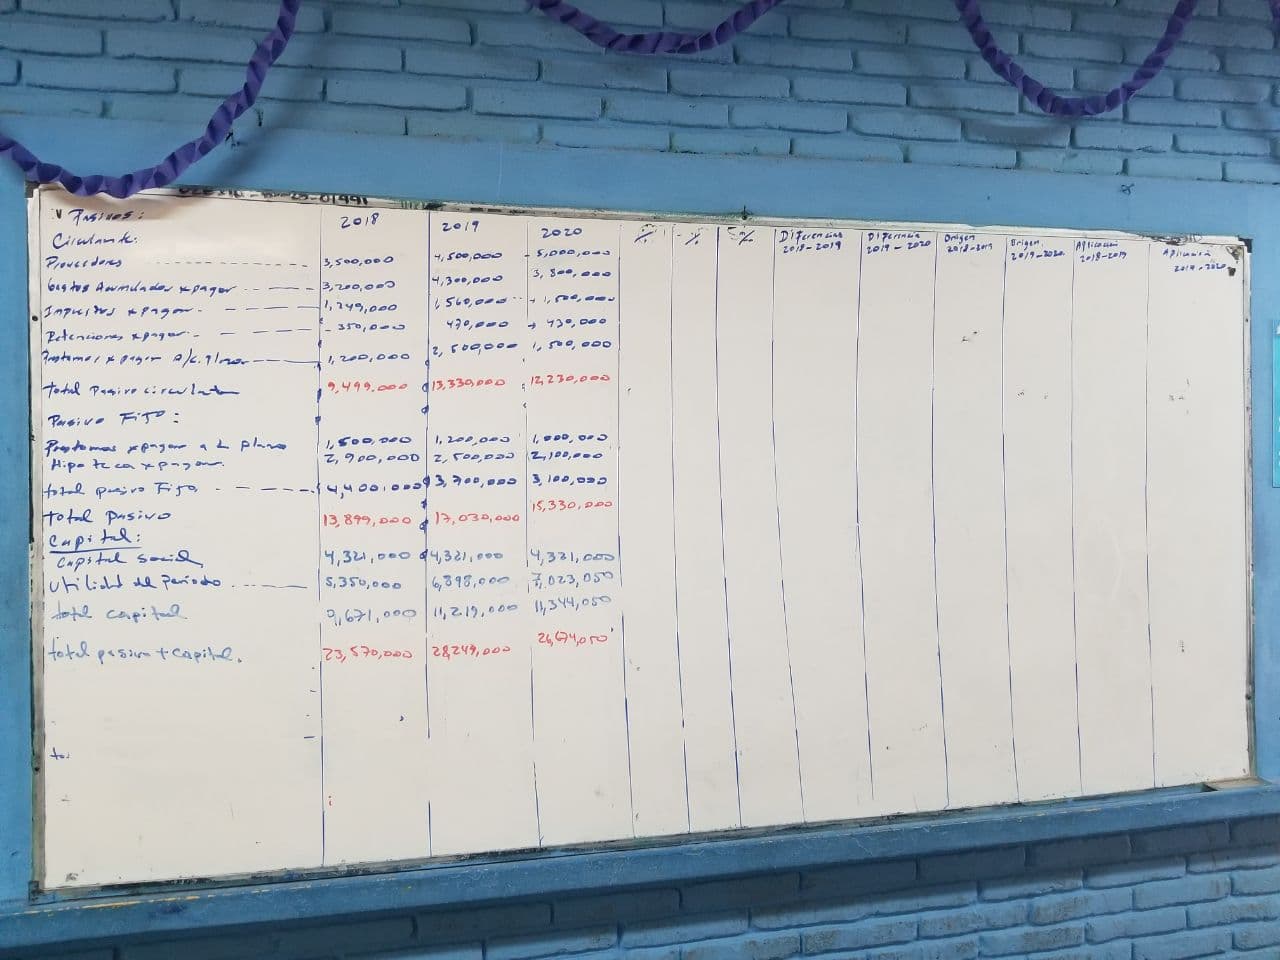 Pasivos: 2018 2019 2020 % % % Diferencias 2018-2019 Diferencia 2019-2020 Origen 2018-2019 Origen 2019-2020 Aplicación 2018-2019 Aplicación 2019-2020
Circulante:
Proveedores 3,500,000 4,500,000 5,000,000
Gastos Acumulados x pagar 3,200,000 4,300,000 3,800,000
Impuestos x pagar 1,249,000 1,560,000 1,500,000
Retenciones x pagar 350,000 470,000 430,000
Prestamos x pagar a/c. plazo 1,200,000 2,500,000 1,500,000
Total Pasivo circulante 9,499,000 13,330,000 12,230,000
Pasivo Fijo:
Prestamos x pagar a L plazo 1,500,000 1,200,000 1,000,000
Hipoteca x pagar. 2,900,000 2,500,000 2,100,000
total pasivo Fijo 4,400,000 3,700,000 3,100,000
Total Pasivo 13,899,000 17,030,000 15,330,000
Capital:
Capital Social 4,321,000 4,321,000 4,321,000
Utilidad del Periodo 5,350,000 6,898,000 7,023,050
total capital 9,671,000 11,219,000 11,344,050
total pasivo + capital. 23,570,000 28,249,000 26,674,050
to